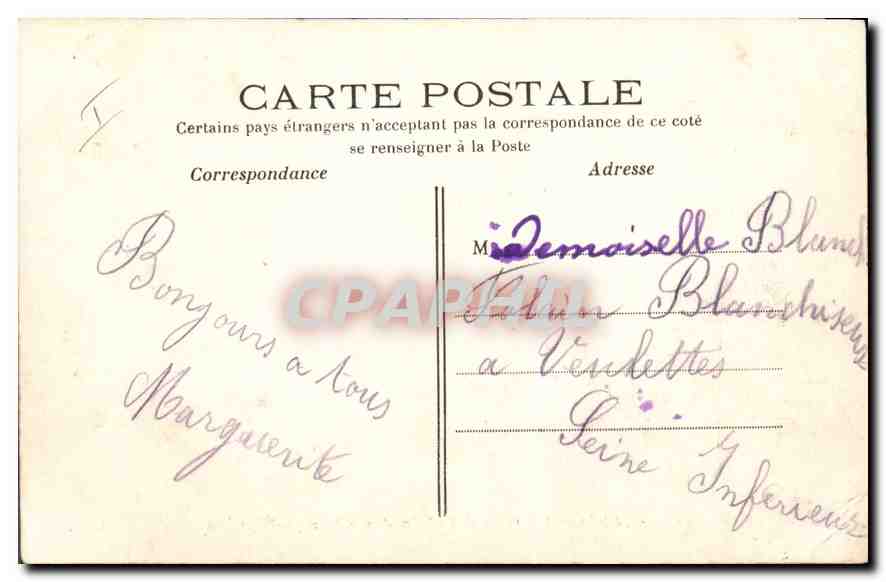 CARTE POSTALE
Certains pays étrangers n'acceptant pas la correspondance de ce coté
se renseigner à la Poste
Correspondance
Adresse
I
Bonjours a tous
Marguerite
Mademoiselle Blanch
Blanchiseuse
a Veulettes
Seine Inferieure
CPAPHIL